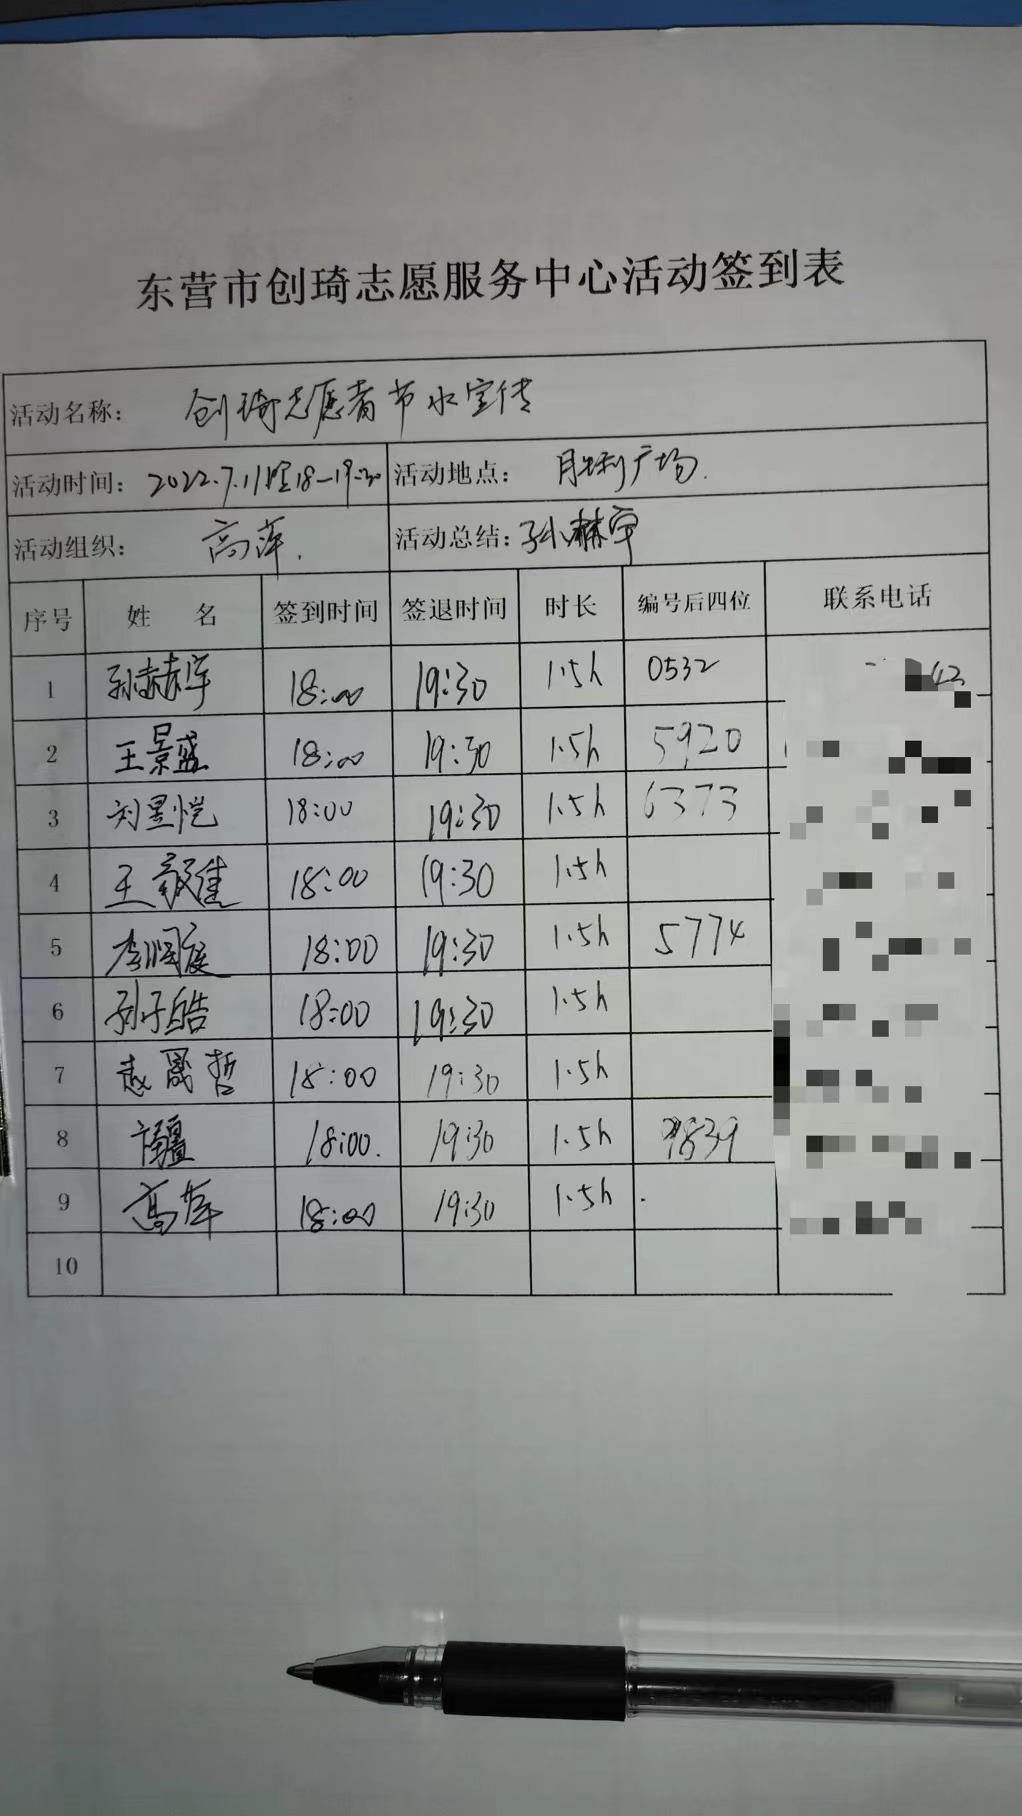 东营市创琦志愿服务中心活动签到表
活动名称： 创琦志愿者节水宣传
活动时间：2022.7.11晚18-19:30 活动地点： 胜利广场.
活动组织： 高萍. 活动总结：孙赫宇
序号 姓 名 签到时间 签退时间 时长 编号后四位 联系电话
1 18:00 19:30 1.5h 0532
2 王景盛 18:00 19:30 1.5h 5920
3 刘昱恺 18:00 19:30 1.5h 6373
4 王 18:00 19:30 1.5h
5 李润庭 18:00 19:30 1.5h 5774
6 孙子皓 18:00 19:30 1.5h
7 晟哲 18:00 19:30 1.5h
8 18:00. 19:30 1.5h 9839
9 高萍 18:00 19:30 1.5h
10